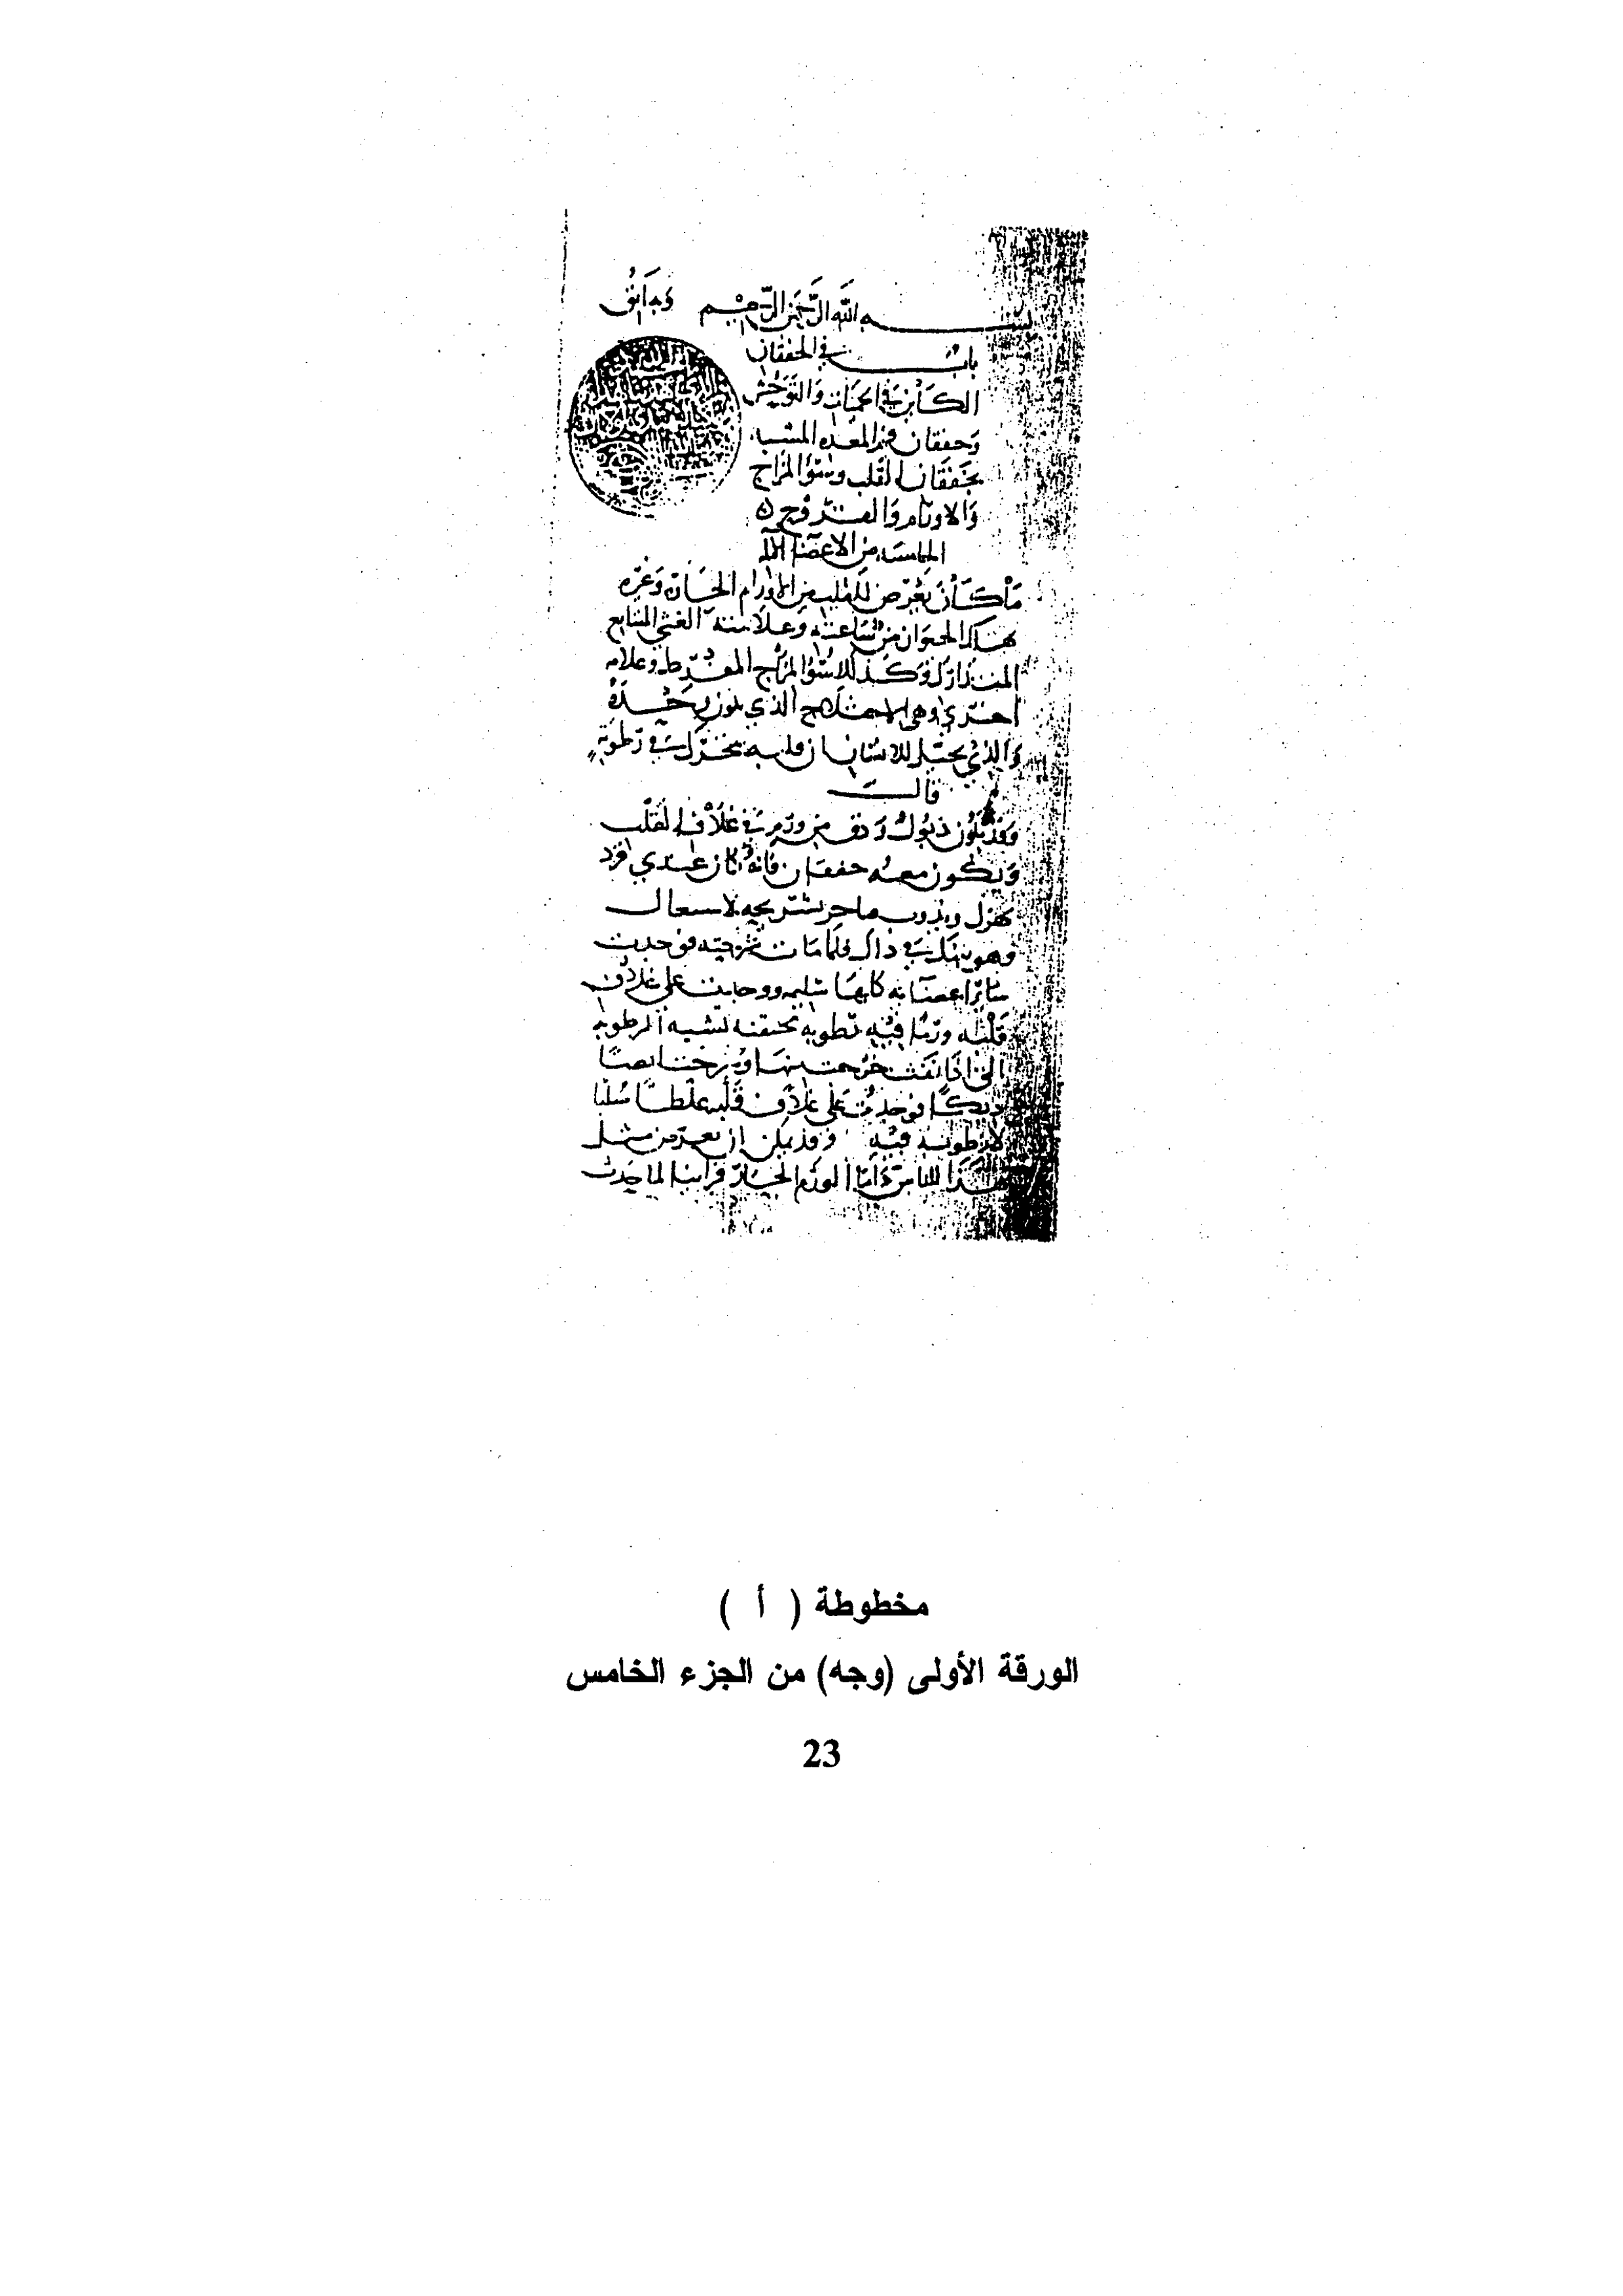 بسم الله الرحمن الرحيم وبه اثق
باب في الخفقان
الكائن في الحميات والتوحش
وخفقان فم المعدة المشبه
بخفقان القلب وسوء المزاج
والاورام والقروح
الخامسة من الاعضاء الالمة
ما كان يعرض للقلب من الاورام الحارة وغيره
الحيوان من ساعته وعلامته الغشي المتتابع
المتدارك وكذلك سوء المزاج المفرط وعلامة
اخرى وهي الاختلاج الذي يكون وحده
والذي يخيل للانسان ان قلبه يتحرك في رطوبة
قال
وقد يكون ذبول ودق من ورم في غلاف القلب
ويكون معه خفقان فانه كان عندي قرد
يهزل ويذوب
وهو في ذاك فلما مات شرحته فوجدت
سائر اعضائه كلها سليمة ووجدت على غلاف
قلبه ورما فيه رطوبة محتقنة تشبه الرطوبة
التي اذا
ديكا فوجدت على غلاف قلبه غلظا صلبا
لا رطوبة فيه وقد يمكن ان يعرض مثل
هذا للناس واما الورم الحار فرايناه لما حدث
مخطوطة ( أ )
الورقة الأولى (وجه) من الجزء الخامس
23